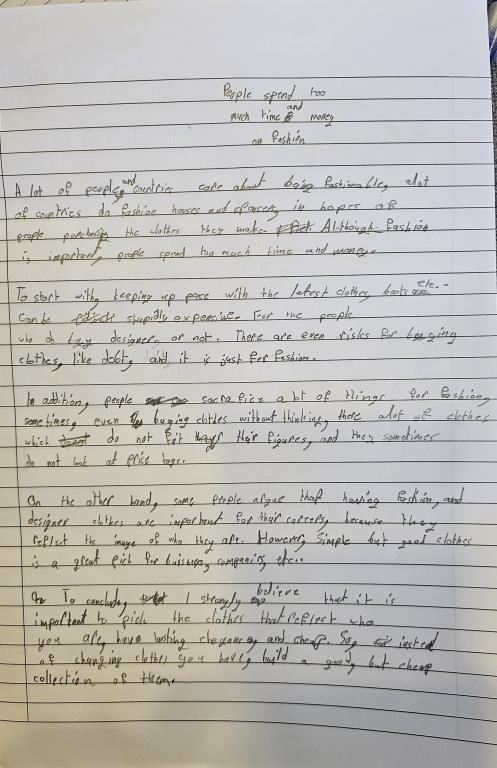 People spend too
much time and money
on fashion
A lot of people, and countries care about being fashionable, alot
of countries do fashion houses and in hopes of
people the clothes they make. Although fashion
is important, people spend too much time and money.
To start with, keeping up pace with the latest clothes, boots etc..
can be stupidly expensive. For the people
who buy designer, or not. There are even risks for buying
clothes, like debt, and it is just for fashion.
In addition, people sacrafice a lot of things for fashion,
sometimes, even buying clothes without thinking, there alot of clothes
which do not fit their figures, and they sometimes
do not look at price tags.
On the other hand, some people argue that having fashion, and
designer clothes are important for their careers, because they
reflect the image of who they are. However, simple but good clothes
is a great pick for buisness, companies, etc..
To conclude, I strongly believe that it is
important to pick the clothes that reflect who
you are, have lasting and cheap. So, insted
of changing clothes you have, build a good, but cheap
collection of them.